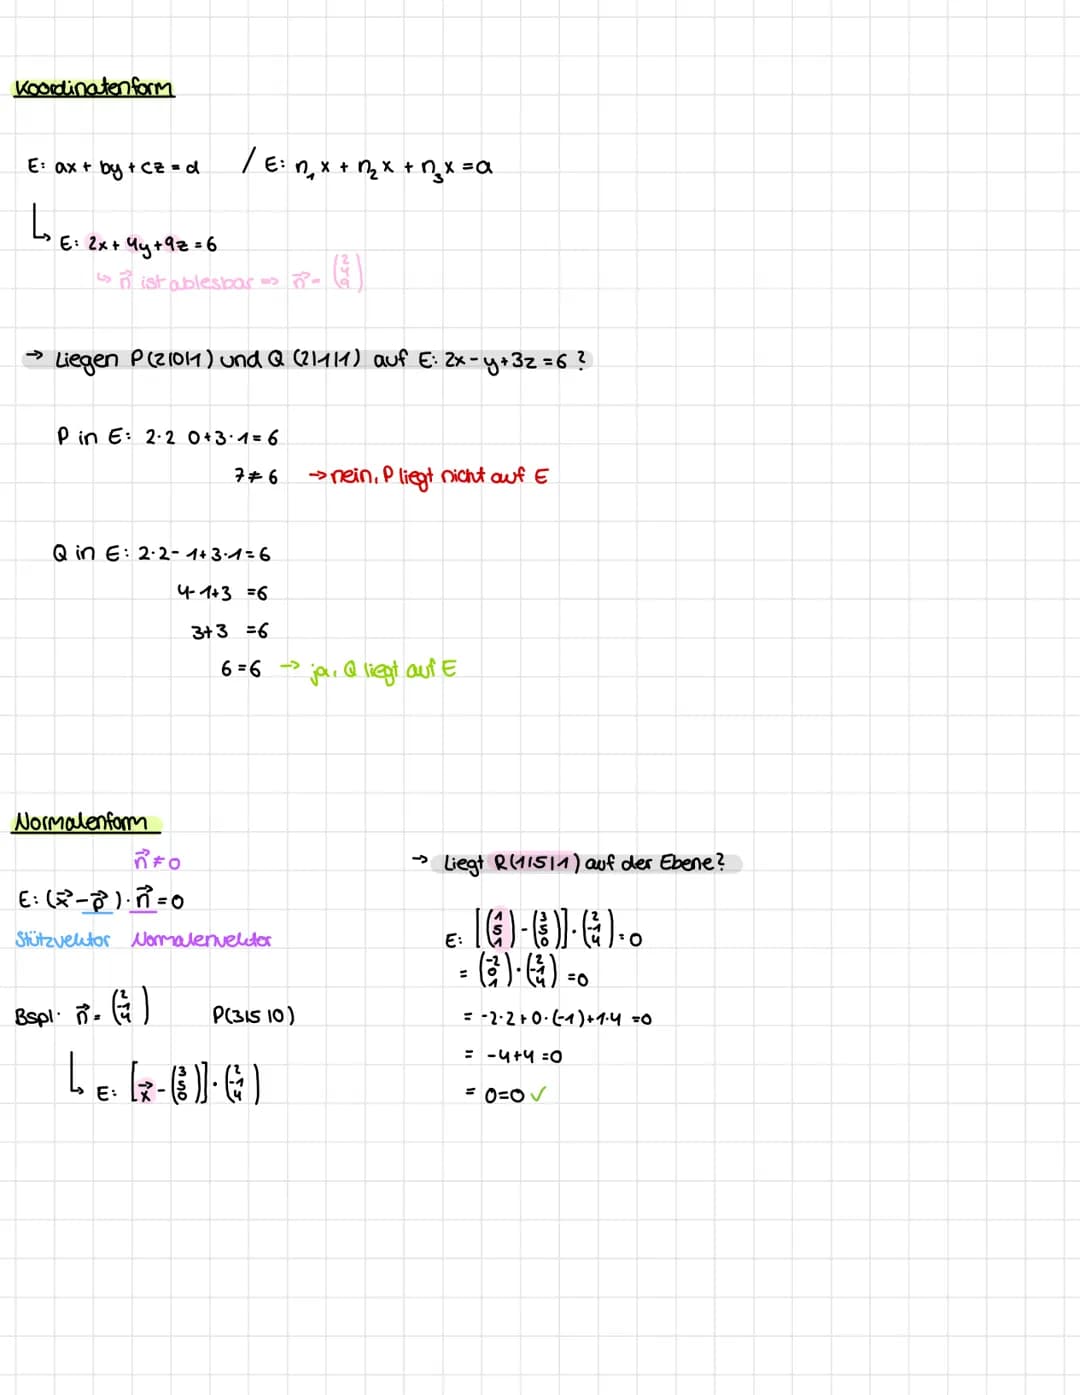 Koordinatenform
E: ax + by + cz = d / E: n₁x + n₂x + n₃x = a
↳ E: 2x + 4y + 9z = 6
↳ n⃗ ist ablesbar => n⃗ = (2 4 9)
→ Liegen P(2|0|1) und Q (2|1|1) auf E: 2x - y + 3z = 6 ?
P in E: 2·2 0+3·1=6
7≠6 → nein, P liegt nicht auf E
Q in E: 2·2-1+3·1=6
4-1+3 =6
3+3 =6
6=6 → ja, Q liegt auf E
Normalenform
n⃗ ≠ 0
E: (x⃗ - p⃗)·n⃗ = 0
Stützvektor Normalenvektor
Bspl. n⃗ = (2 -1 4) P(3|5|0)
↳ E: [x⃗ - (3 5 0)]·(2 -1 4)
→ Liegt R(1|5|1) auf der Ebene?
E: [(1 5 1) - (3 5 0)]·(2 -1 4) = 0
= (-2 0 1)·(2 -1 4) =0
= -2·2+0·(-1)+1·4 =0
= -4+4 =0
= 0=0 ✓